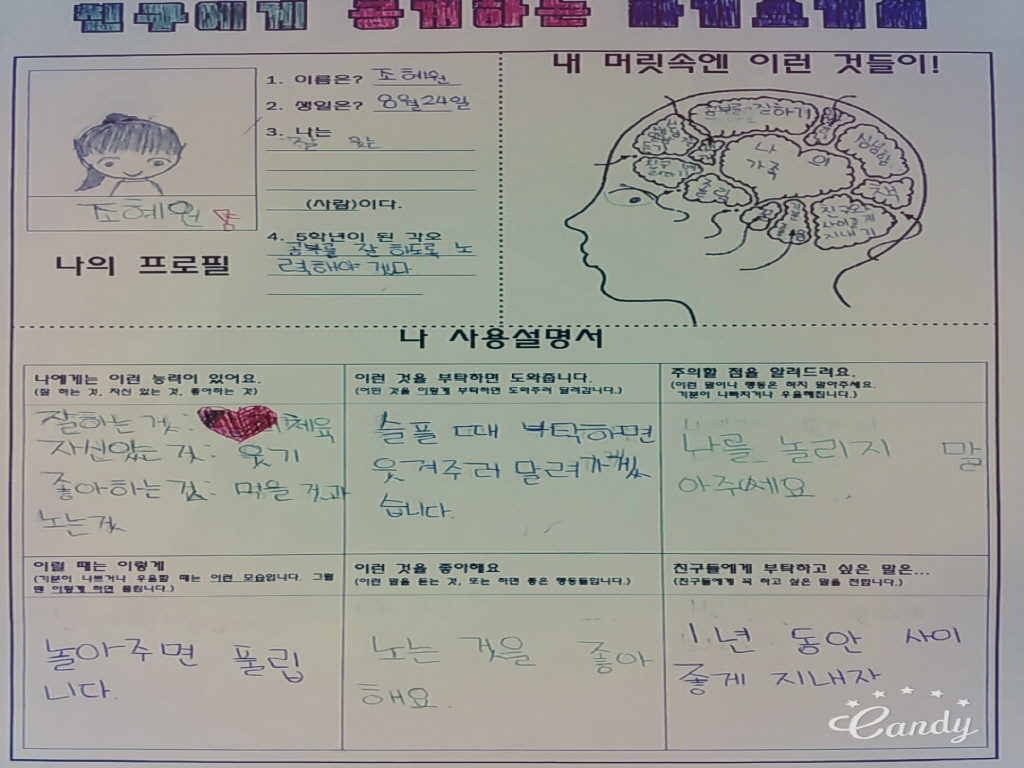 친구에게 공개하는 자기소개서
내 머릿속엔 이런 것들이!
1. 이름은? 조혜원
2. 생일은? 8월24일
3. 나는
잘 웃는
(사람)이다.
4. 5학년이 된 각오
공부를 잘 하도록 노
력해야 겠다
조혜원
나의 프로필
공부를 잘하기
나의
가족
심부름
책
친구와
사이좋게
지내기
나 사용설명서
나에게는 이런 능력이 있어요.
(잘 하는 것, 자신 있는 것, 좋아하는 것)
잘하는 것: 체육
자신있는 것: 웃기
좋아하는 것: 먹을 것과
노는것
이런 것을 부탁하면 도와줍니다.
(어떤 것을 이렇게 부탁하면 도와주러 달려갑니다.)
슬플 때 부탁하면
웃겨주러 달려가겠
습니다.
주의할 점을 알려드려요.
(이런 말이나 행동은 하지 말아주세요.
기분이 나빠지거나 우울해집니다.)
나를 놀리지 말
아주세요.
이럴 때는 이렇게
(기분이 나쁘거나 우울할 때는 이런 모습입니다. 그럴
땐 이렇게 하면 풀립니다.)
놀아주면 풀립
니다.
이런 것을 좋아해요
(이런 말을 듣는 것, 또는 하면 좋은 행동들입니다.)
노는 것을 좋아
해요.
친구들에게 부탁하고 싶은 말은...
(친구들에게 꼭 하고 싶은 말을 전합니다.)
1년 동안 사이
좋게 지내자
Candy